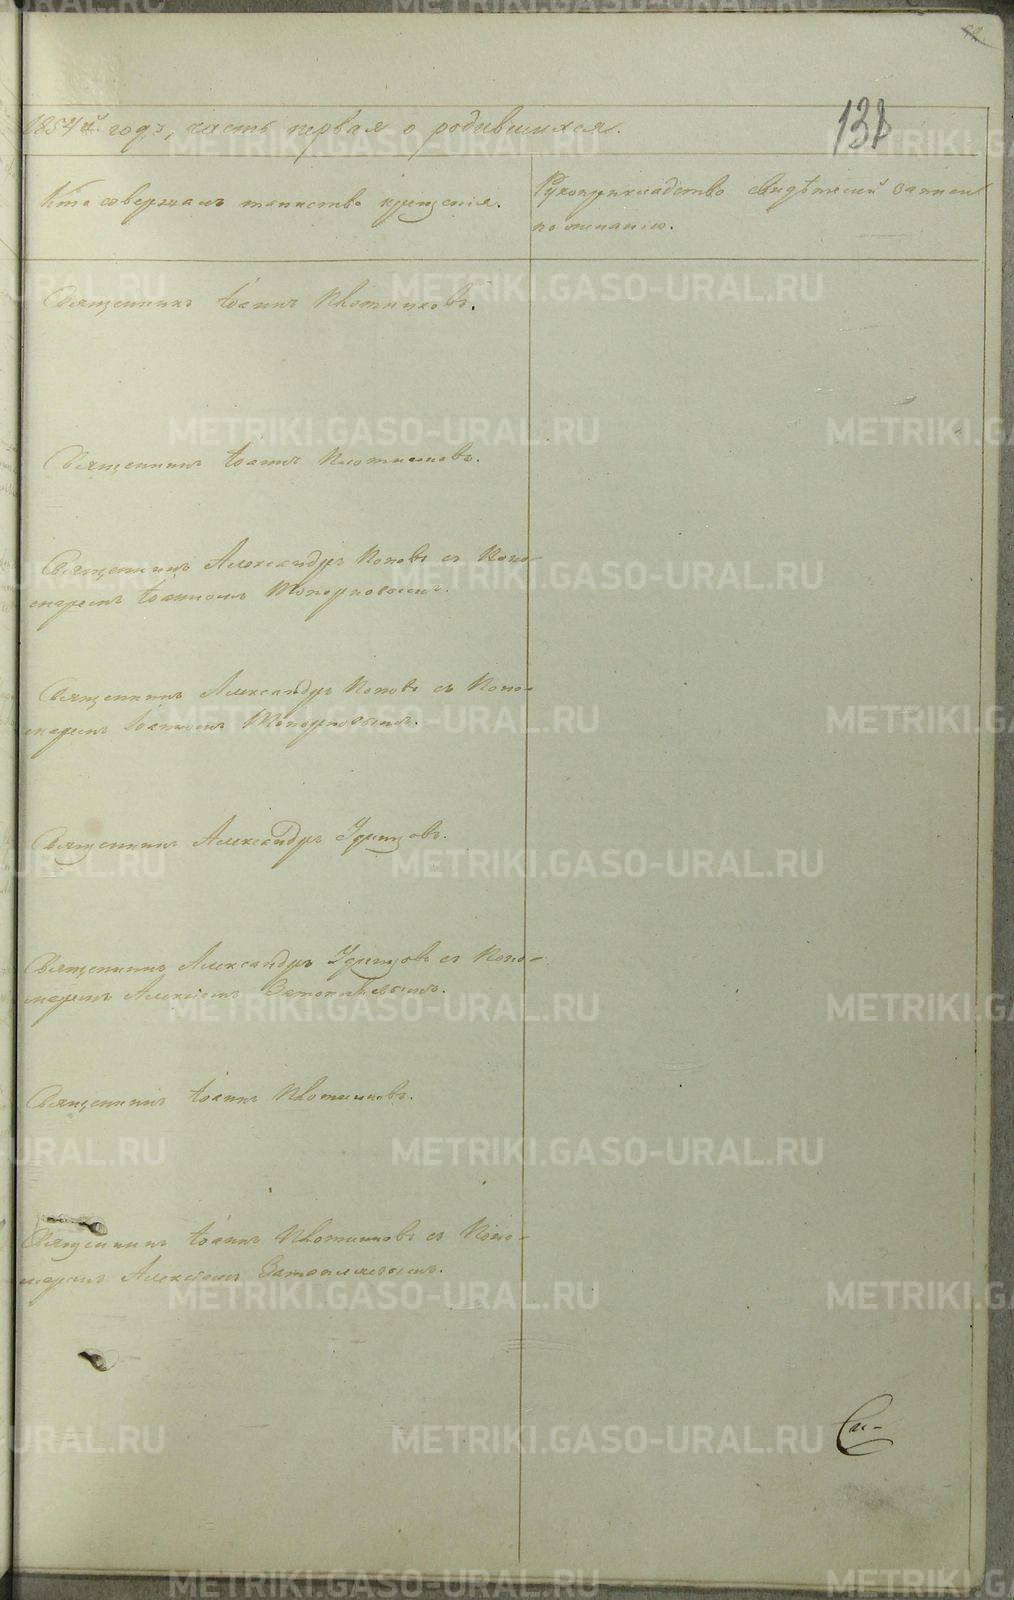 138
1854й годъ, часть первая о родившихся.
Кто совершалъ таинство крещенія.
Рукоприкладство свидѣтелей записи
по желанію.
Священникъ Іоаннъ Плотниковъ.
Священникъ Іоаннъ Плотниковъ.
Священникъ Александръ Поповъ съ Поно-
маремъ Іоанномъ
Священникъ Александръ Поповъ съ Поно-
маремъ Іоанномъ
Священникъ Александръ Удинцовъ.
Священникъ Александръ Удинцовъ съ Поно-
маремъ Алексіемъ Затопляевымъ.
Священникъ Іоаннъ Плотниковъ.
Священникъ Іоаннъ Плотниковъ съ Поно-
маремъ Алексіемъ Затопляевымъ.
METRIKI.GASO-URAL.RU